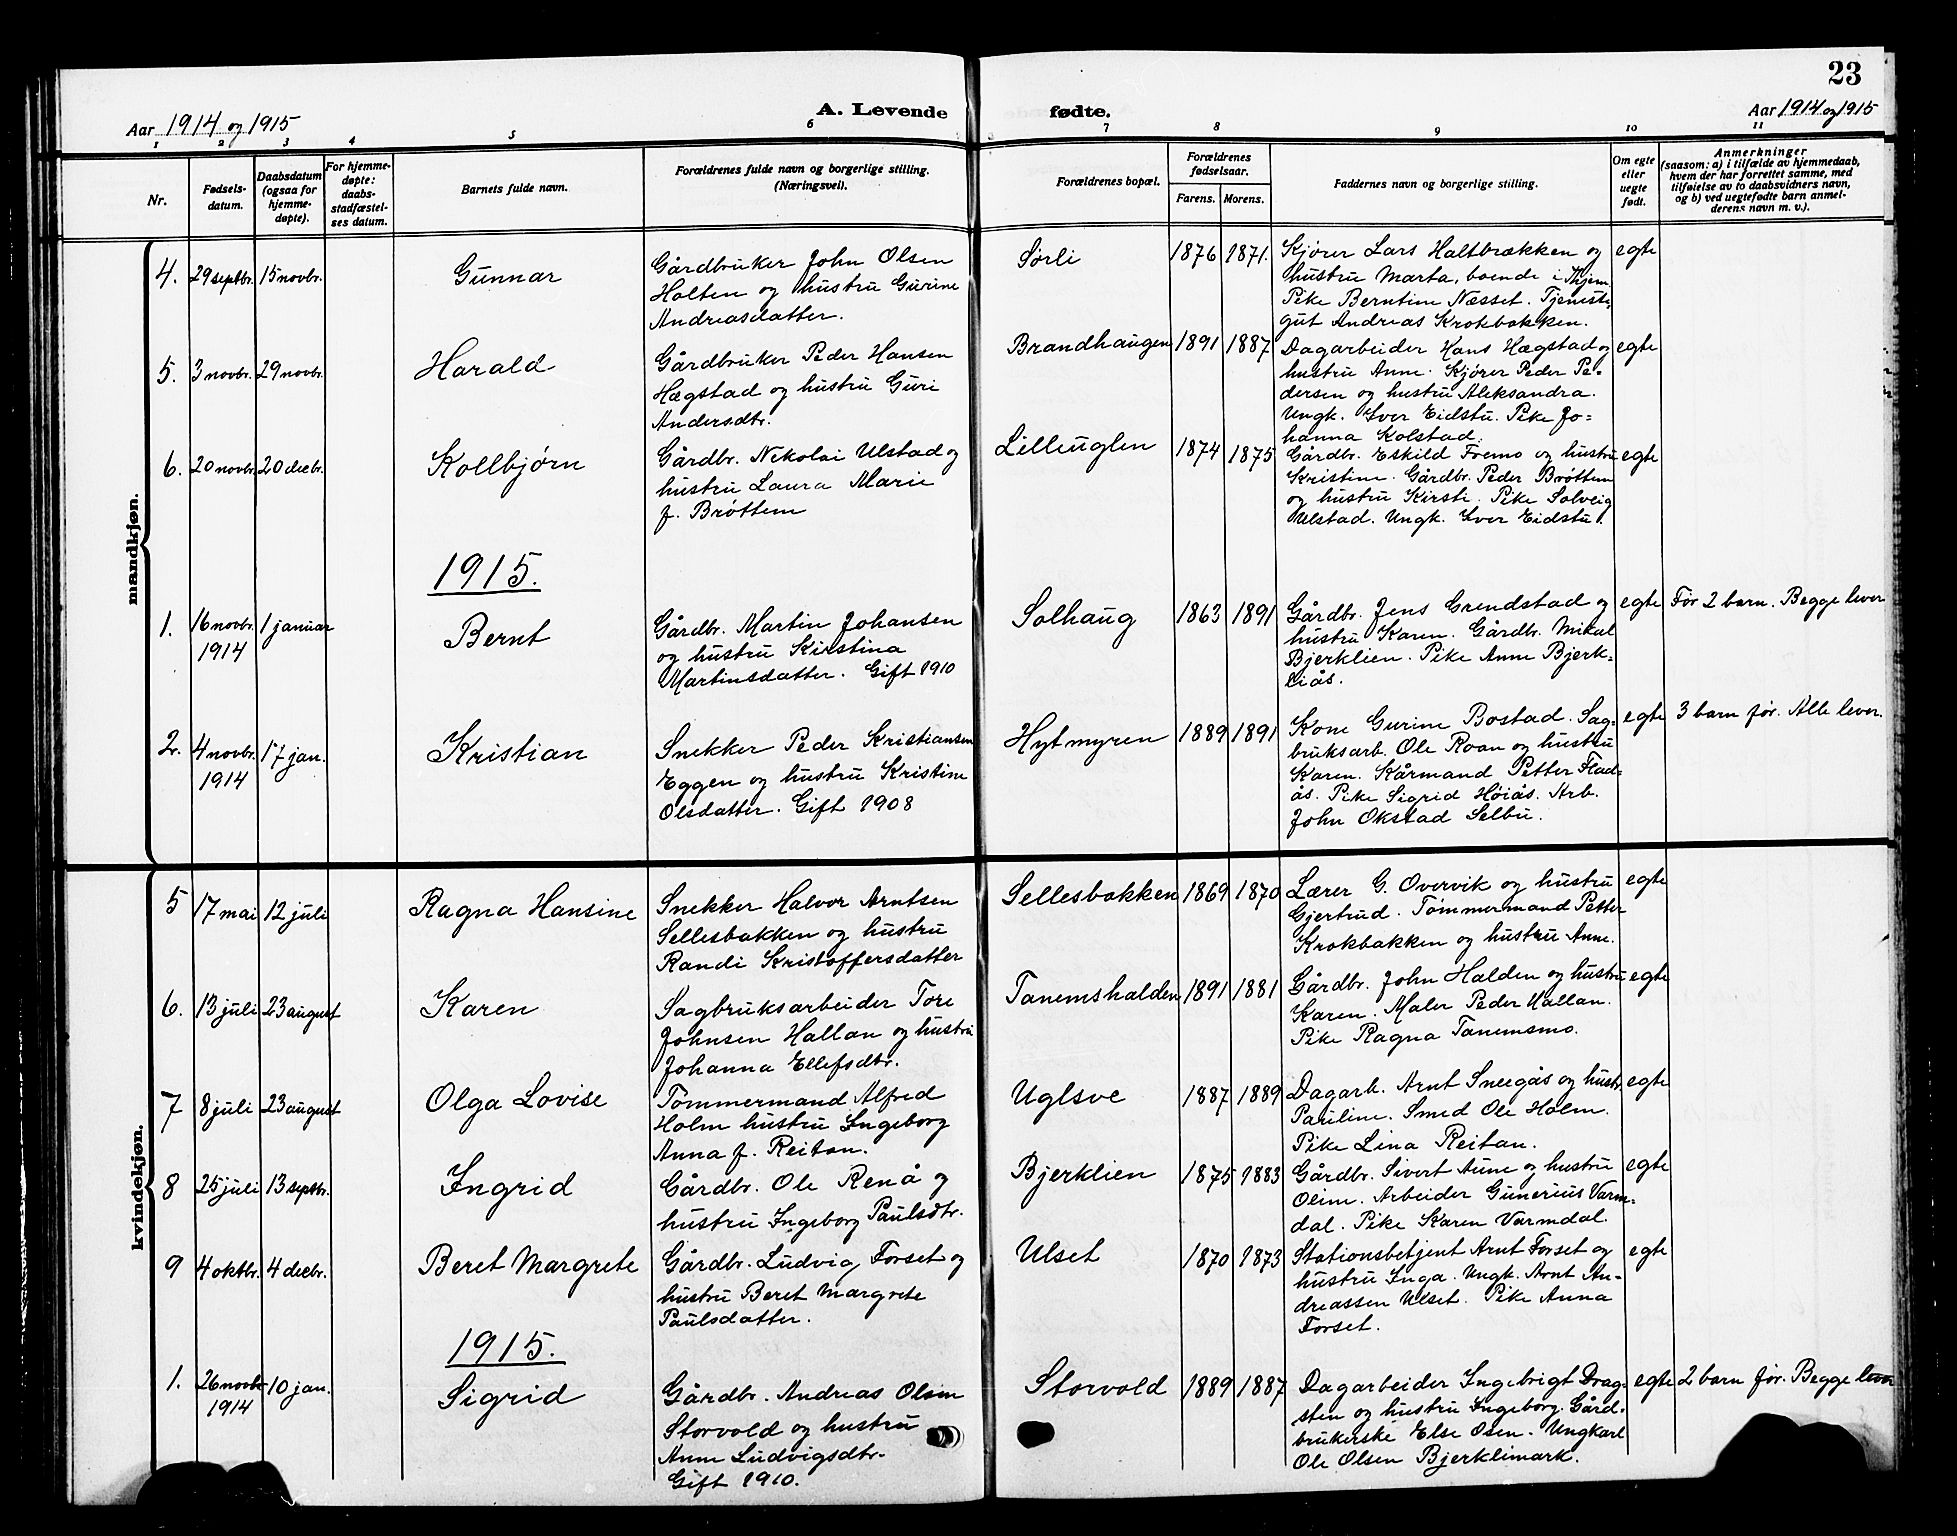 23
A. Levende fødte.
Aar 1914 og 1915
Aar 1914 og 1915
1 2 3 4 5 6 7 8 9 10 11
Nr.
Fødsels-
datum.
Daabsdatum
(ogsaa for
hjemme-
døpte).
For hjemme-
døpte:
daabs-
stadfæstel-
ses datum.
Barnets fulde navn.
Forældrenes fulde navn og borgerlige stilling.
(Næringsvei).
Forældrenes bopæl.
Forældrenes
fødselsaar.
Farens. Morens.
Faddernes navn og borgerlige stilling.
Om egte
eller
uegte
født.
Anmerkninger
(saasom: a) i tilfælde av hjemmedaab,
hvem der har forrettet samme, med
tilføielse av to daabsvidners navn,
og b) ved uegtefødte barn anmel-
derens navn m. v.).
mandkjøn.
4. 29 septbr. 15 novbr.
Gunnar
Gårdbruker John Olsen
Holten og hustru Gurine
Andreasdatter.
Sørli
1876 1871.
Kjører Lars Haltbrækken og
hustru Marta, boende i Thjem
Pike Berntine Næsset. Tjeneste
gut Andreas Krokbakken.
egte
5. 3 novbr. 29 novbr.
Harald
Gårdbruker Peder Hansen
Hægstad og hustru Guri
Andersdtr.
Brandhaugen
1891 1887
Dagarbeider Hans Hægstad og
hustru Anne. Kjører Peder Pe-
dersen og hustru Aleksandra.
Ungk. Iver Eidstu. Pike Jo=
hanna Kolstad.
egte
6. 20 novbr. 20 decbr.
Kollbjørn
Gårdbr. Nikolai Ulstad og
hustru Laura Marie
f. Brøttem
Lilleuglen
1874 1875
Gårdbr. Eskild Fremo og hustru
Kristine. Gårdbr. Peder Brøttem
og hustru Kirsti. Pike Solveig
Ulstad. Ungk. Iver Eidstu.
egte
1915.
1. 16 novbr. 1 januar
1914
Bernt
Gårdbr. Martin Johansen
og hustru Kirstina
Martinsdatter. Gift 1910
Solhaug
1863 1891
Gårdbr. Jens Grendstad og
hustru Karen. Gårdbr. Mikal
Bjerklien. Pike Anne Bjerk-
liås.
egte
Før 2 barn. Begge lever
2. 4 novbr. 17 jan.
1914
Kristian
Snekker Peder Kristiansen
Eggen og hustru Kristine
Olsdatter. Gift 1908
Hytmyren
1889 1891
Kone Gurine Bostad. Sag-
bruksarb. Ole Roan og hustru
Karen. Kårmand Petter Flad=
ås. Pike Sigrid Høiås. Arb.
John Okstad Selbu.
egte
3 barn før. Alle lever.
kvindekjøn.
5 17 mai 12 juli
Ragna Hansine
Snekker Halvor Arntsen
Sellesbakken og hustru
Randi Kristoffersdatter
Sellesbakken
1869 1870
Lærer G. Overvik og hustru
Gjertrud. Tømmermand Petter
Krokbakken og hustru Anne.
egte
6. 13 juli 23 august
Karen
Sagbruksarbeider Tore
Johnsen Hallan og hustru
Johanna Ellefsdtr.
Tanemshalden
1891 1881
Gårdbr. John Halden og hustru
Karen. Maler Peder Hallan.
Pike Ragna Tanemsmo.
egte
7 8 juli 23 august
Olga Lovise
Tømmermand Alfred
Holm hustru Ingeborg
Anna f. Reitan.
Uglsve
1887 1889
Dagarb. Arnt Sneegås og hustr.
Pauline. Smed Ole Holm.
Pike Lina Reitan.
egte
8 25 juli 13 septbr.
Ingrid
Gårdbr. Ole Renå og
hustru Ingeborg Paulsdtr.
Bjerklien
1875 1883
Gårdbr. Sivert Aune og hustru
Oline. Arbeider Gunerius Varm-
dal. Pike Karen Varmdal.
egte
9 4 oktbr. 4 decbr.
Beret Margrete
Gårdbr. Ludvig Forset og
hustru Beret Margrete
Paulsdatter.
Ulset
1870 1873
Stationsbetjent Arnt Forset og
hustru Inga. Ungk. Arnt An-
dreassen Ulset. Pike Anna
Forset.
egte
1915.
1. 26 novbr. 10 jan.
1914
Sigrid
Gårdbr. Andreas Olsen
Storvold og hustru
Anne Ludvigsdtr.
Gift 1910.
Storvold
1889 1887
Dagarbeider Ingebrigt Drag-
sten og hustru Ingeborg. Gård-
brukerske Else Osen. Ungkarl
Ole Olsen Bjerklimark.
egte
2 barn før. Begge lever